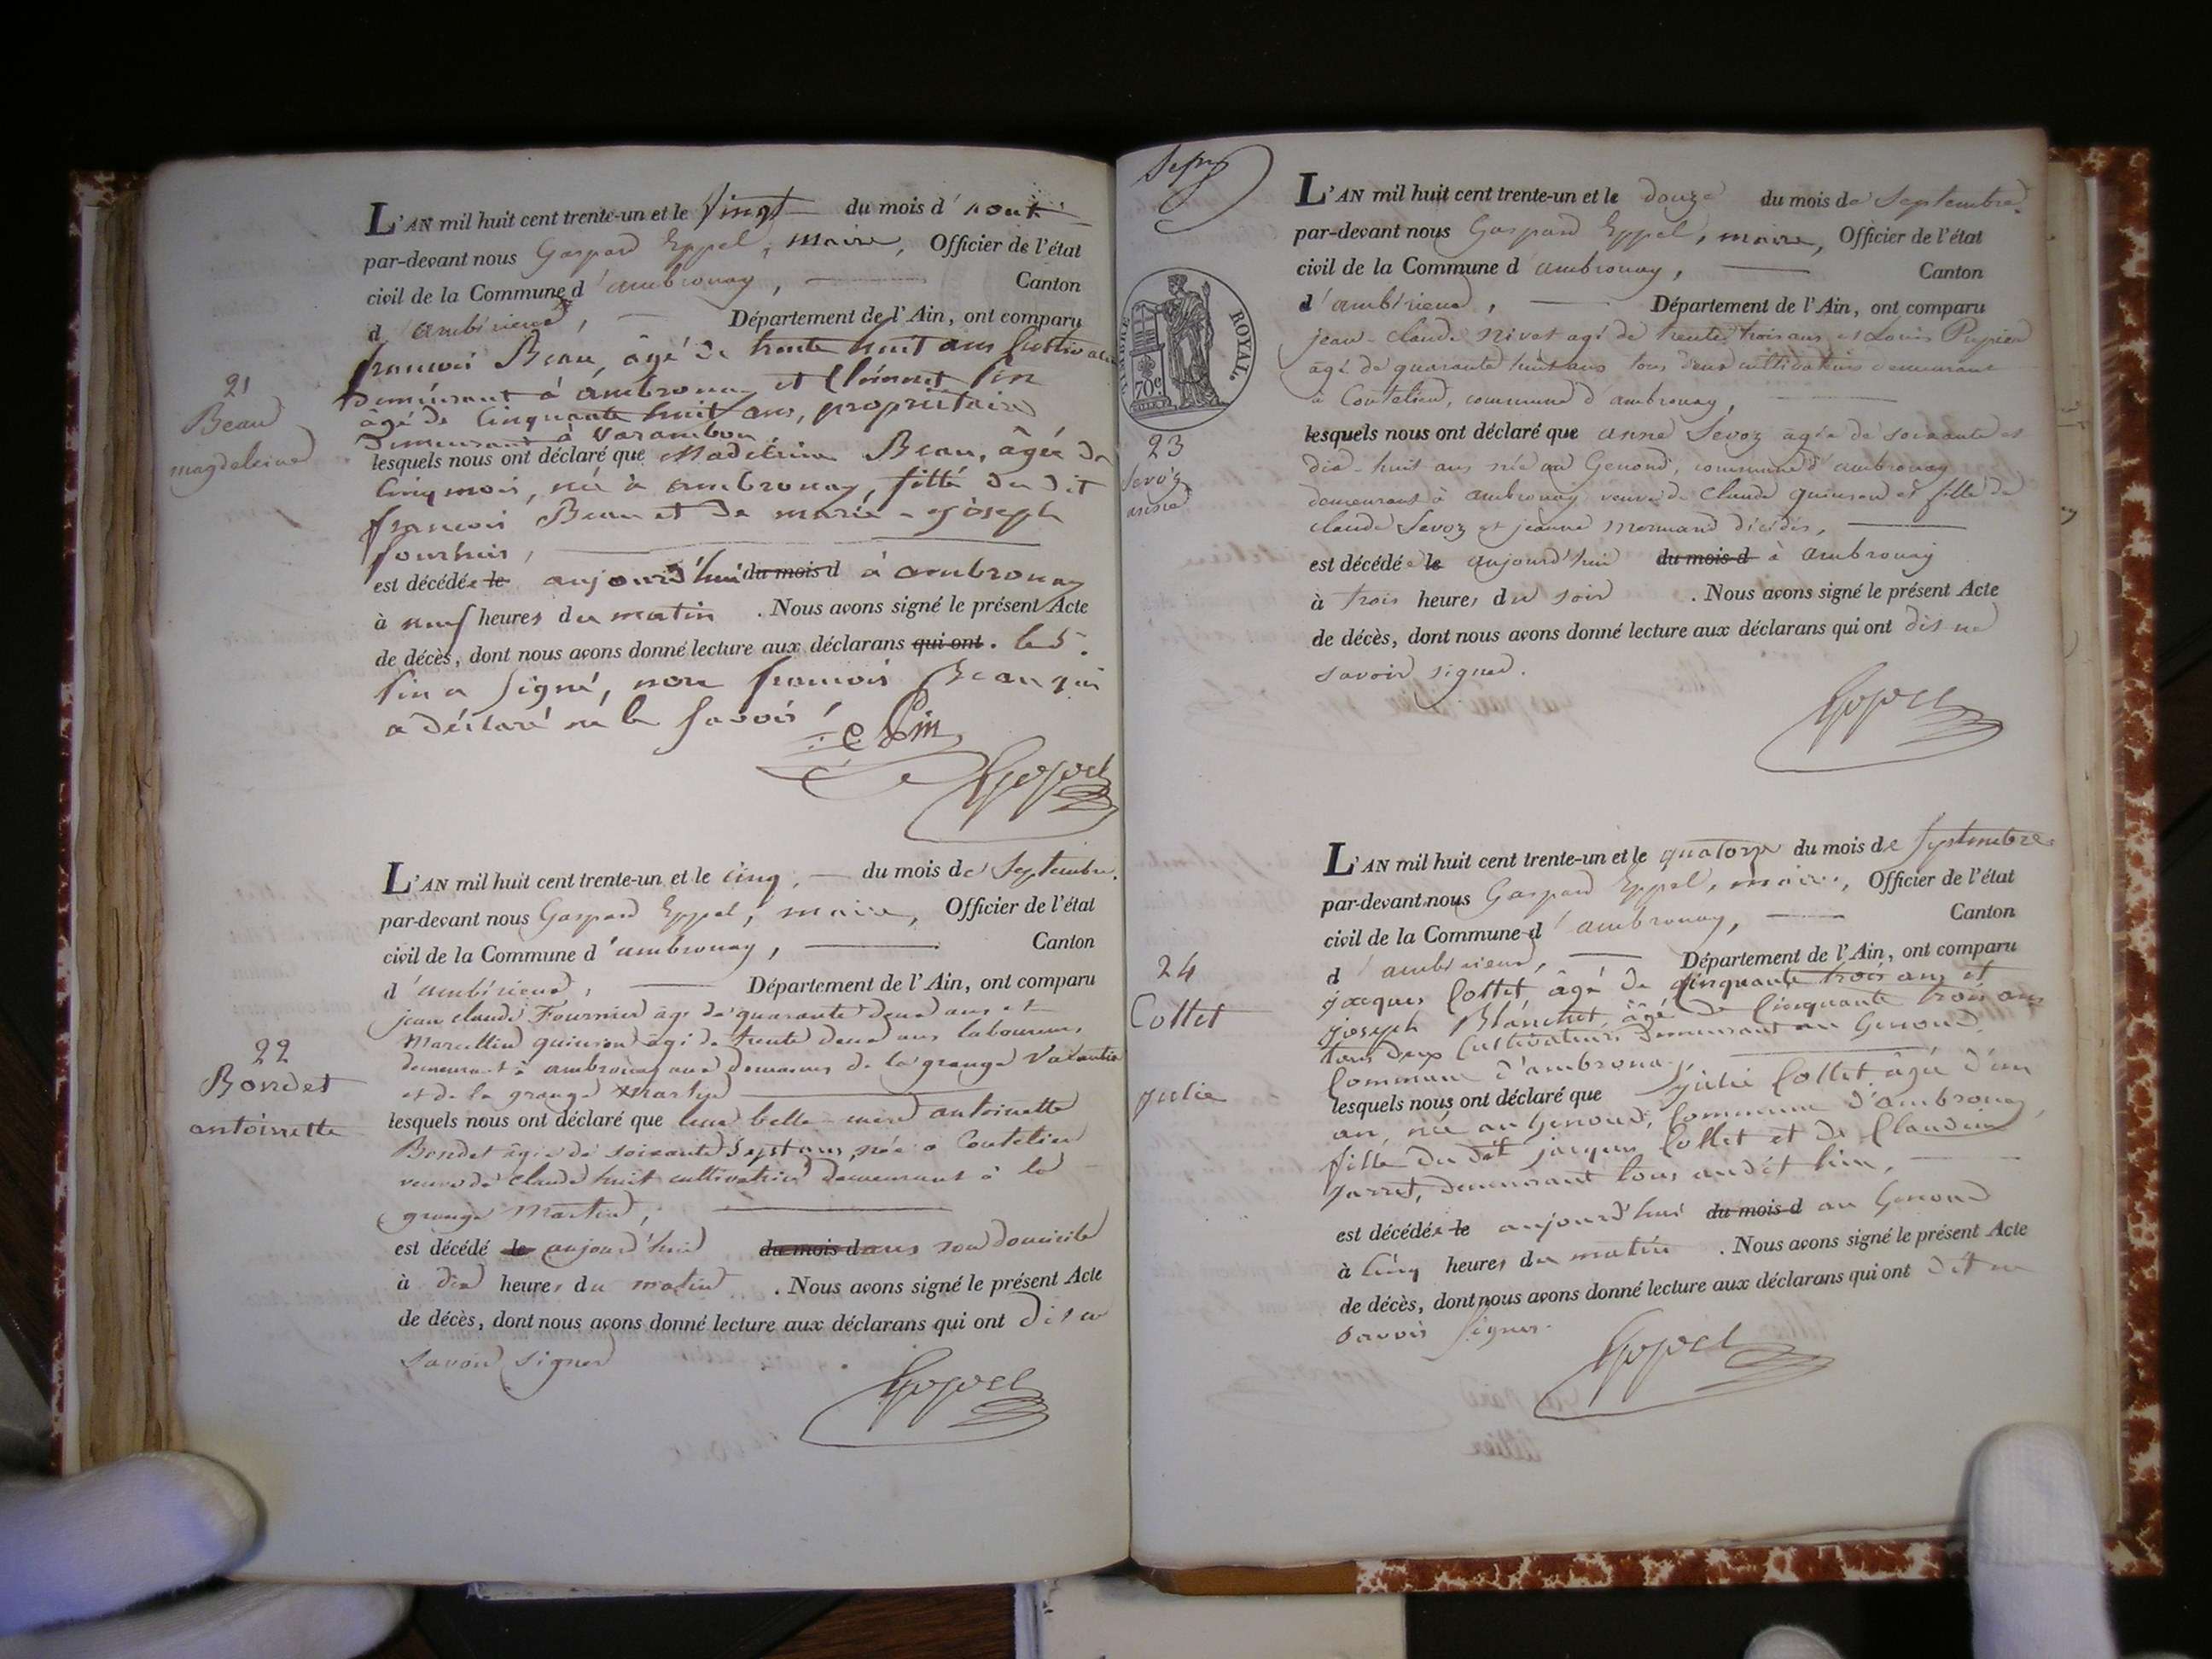 L'AN mil huit cent trente-un et le Vingt du mois d'aout
par-devant nous Gaspard Eppel, maire, Officier de l'état
civil de la Commune d'ambronay, Canton
d'ambérieux, Département de l'Ain, ont comparu
francois Beau, âgé de trente huit ans Cultivateur
Demeurant à ambronay et Clément Pin
âgé de Cinquante huit ans, propriétaire
Demeurant à Varambon
21
Beau
magdeleine
lesquels nous ont déclaré que Madeleine Beau, âgée de
Cinq mois, née à ambronay, fille du dit
francois Beau et de marie-josèph
fournier,
est décédée le aujourd'hui du mois d à ambronay
à neuf heures du matin. Nous avons signé le présent Acte
de décès, dont nous avons donné lecture aux déclarans qui ont. le S.
Pin a Signé, non francois Beau qui
a déclaré ne le Savoir,
C Pin
Eppel
L'AN mil huit cent trente-un et le cinq, du mois de Septembre.
par-devant nous Gaspard Eppel, maire, Officier de l'état
civil de la Commune d'ambronay, Canton
d'ambérieux, Département de l'Ain, ont comparu
jean claude Fournier âgé de quarante deux ans et
Marcellin quinson âgé de trente deux ans laboureurs,
demeurant à ambronay aux domaines de la grange
et de la grange
22
Bondet
antoinette
lesquels nous ont déclaré que leur belle-mère antoinette
Bondet âgée de soixante Sept ans, née à Coutelieu
veuve de claude huit cultivatrice demeurant à la
grange Martin,
est décédé le aujourd'hui du mois dans son domicile
à dix heures du matin. Nous avons signé le présent Acte
de décès, dont nous avons donné lecture aux déclarans qui ont dit ne
savoir signer
Eppel
TIMBRE ROYAL.
70c
L'AN mil huit cent trente-un et le douze du mois de Septembre.
par-devant nous Gaspard Eppel, maire, Officier de l'état
civil de la Commune d'ambronay, Canton
d'ambérieux, Département de l'Ain, ont comparu
jean-claude nivet agé de trente trois ans et Louis Pupier
âgé de quarante huit ans tous deux cultivateurs demeurant
à Coutelieu, commune d'ambronay,
23
Sevoz
anne
lesquels nous ont déclaré que anne Sevoz âgée de soixante et
dix-huit ans née au Genoud, commune d'ambronay
demeurant à ambronay veuve de Claude quinson et fille de
claude Sevoz et jeanne mermand décédés,
est décédée le aujourd'hui du mois d à ambronay
à trois heures du soir. Nous avons signé le présent Acte
de décès, dont nous avons donné lecture aux déclarans qui ont dit ne
savoir signer.
Eppel
L'AN mil huit cent trente-un et le quatorze du mois de Septembre
par-devant nous Gaspard Eppel, maire, Officier de l'état
civil de la Commune d'ambronay, Canton
d'ambérieux, Département de l'Ain, ont comparu
jacques Collet âgé de Cinquante trois ans et
joseph Blanchet, âgé de Cinquante trois ans
tous deux Cultivateurs Demeurant au Genoud,
Commune d'ambronay,
24
Collet
julie
lesquels nous ont déclaré que julie Collet âgée d'un
an, née au Genoud, Commune d'ambronay,
fille du dit jacques Collet et de Claudine
jarret, demeurant tous audit lieu,
est décédée le aujourd'hui du mois d au Genoud
à Cinq heures du matin. Nous avons signé le présent Acte
de décès, dont nous avons donné lecture aux déclarans qui ont dit ne
savoir Signer.
Eppel